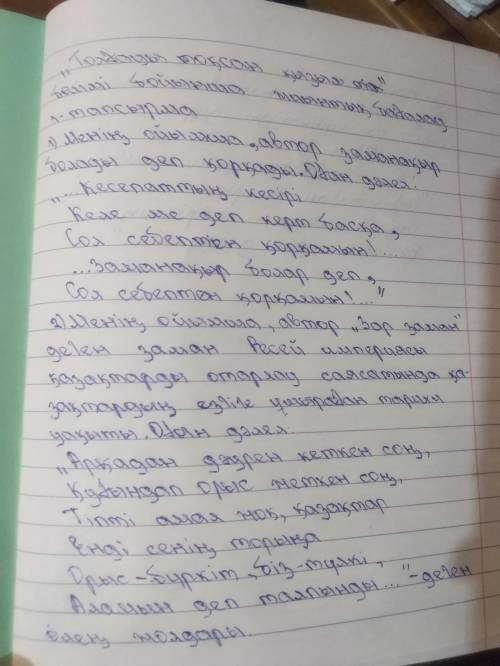 "Толғады тоқсан қызыл тіл"
бөлімі бойынша жиынтық бағалау
1-тапсырма
1) Менің ойымша, автор заманақыр
болады деп қорқады. Оған дәлел:
"...Кесепаттың кесірі
Келе ме деп керт басқа,
Сол себептен қорқамын!...
...Заманақыр болар деп,
Сол себептен қорқамын!..."
2) Менің ойымша, автор "Зар заман"
деген заман Ресей империясы
қазақтарды отарлау саясатында қа-
зақтардың езгіге ұшыраған тарихи
уақыты. Оған дәлел:
"Арқадан дәурен кеткен соң,
Қуғындап орыс жеткен соң,
Тіпті амал жоқ, қазақтар
Енді сенің торыңа
Орыс-бүркіт, біз-түлкі,
Аламын деп талпынды..."-деген
өлең жолдары.